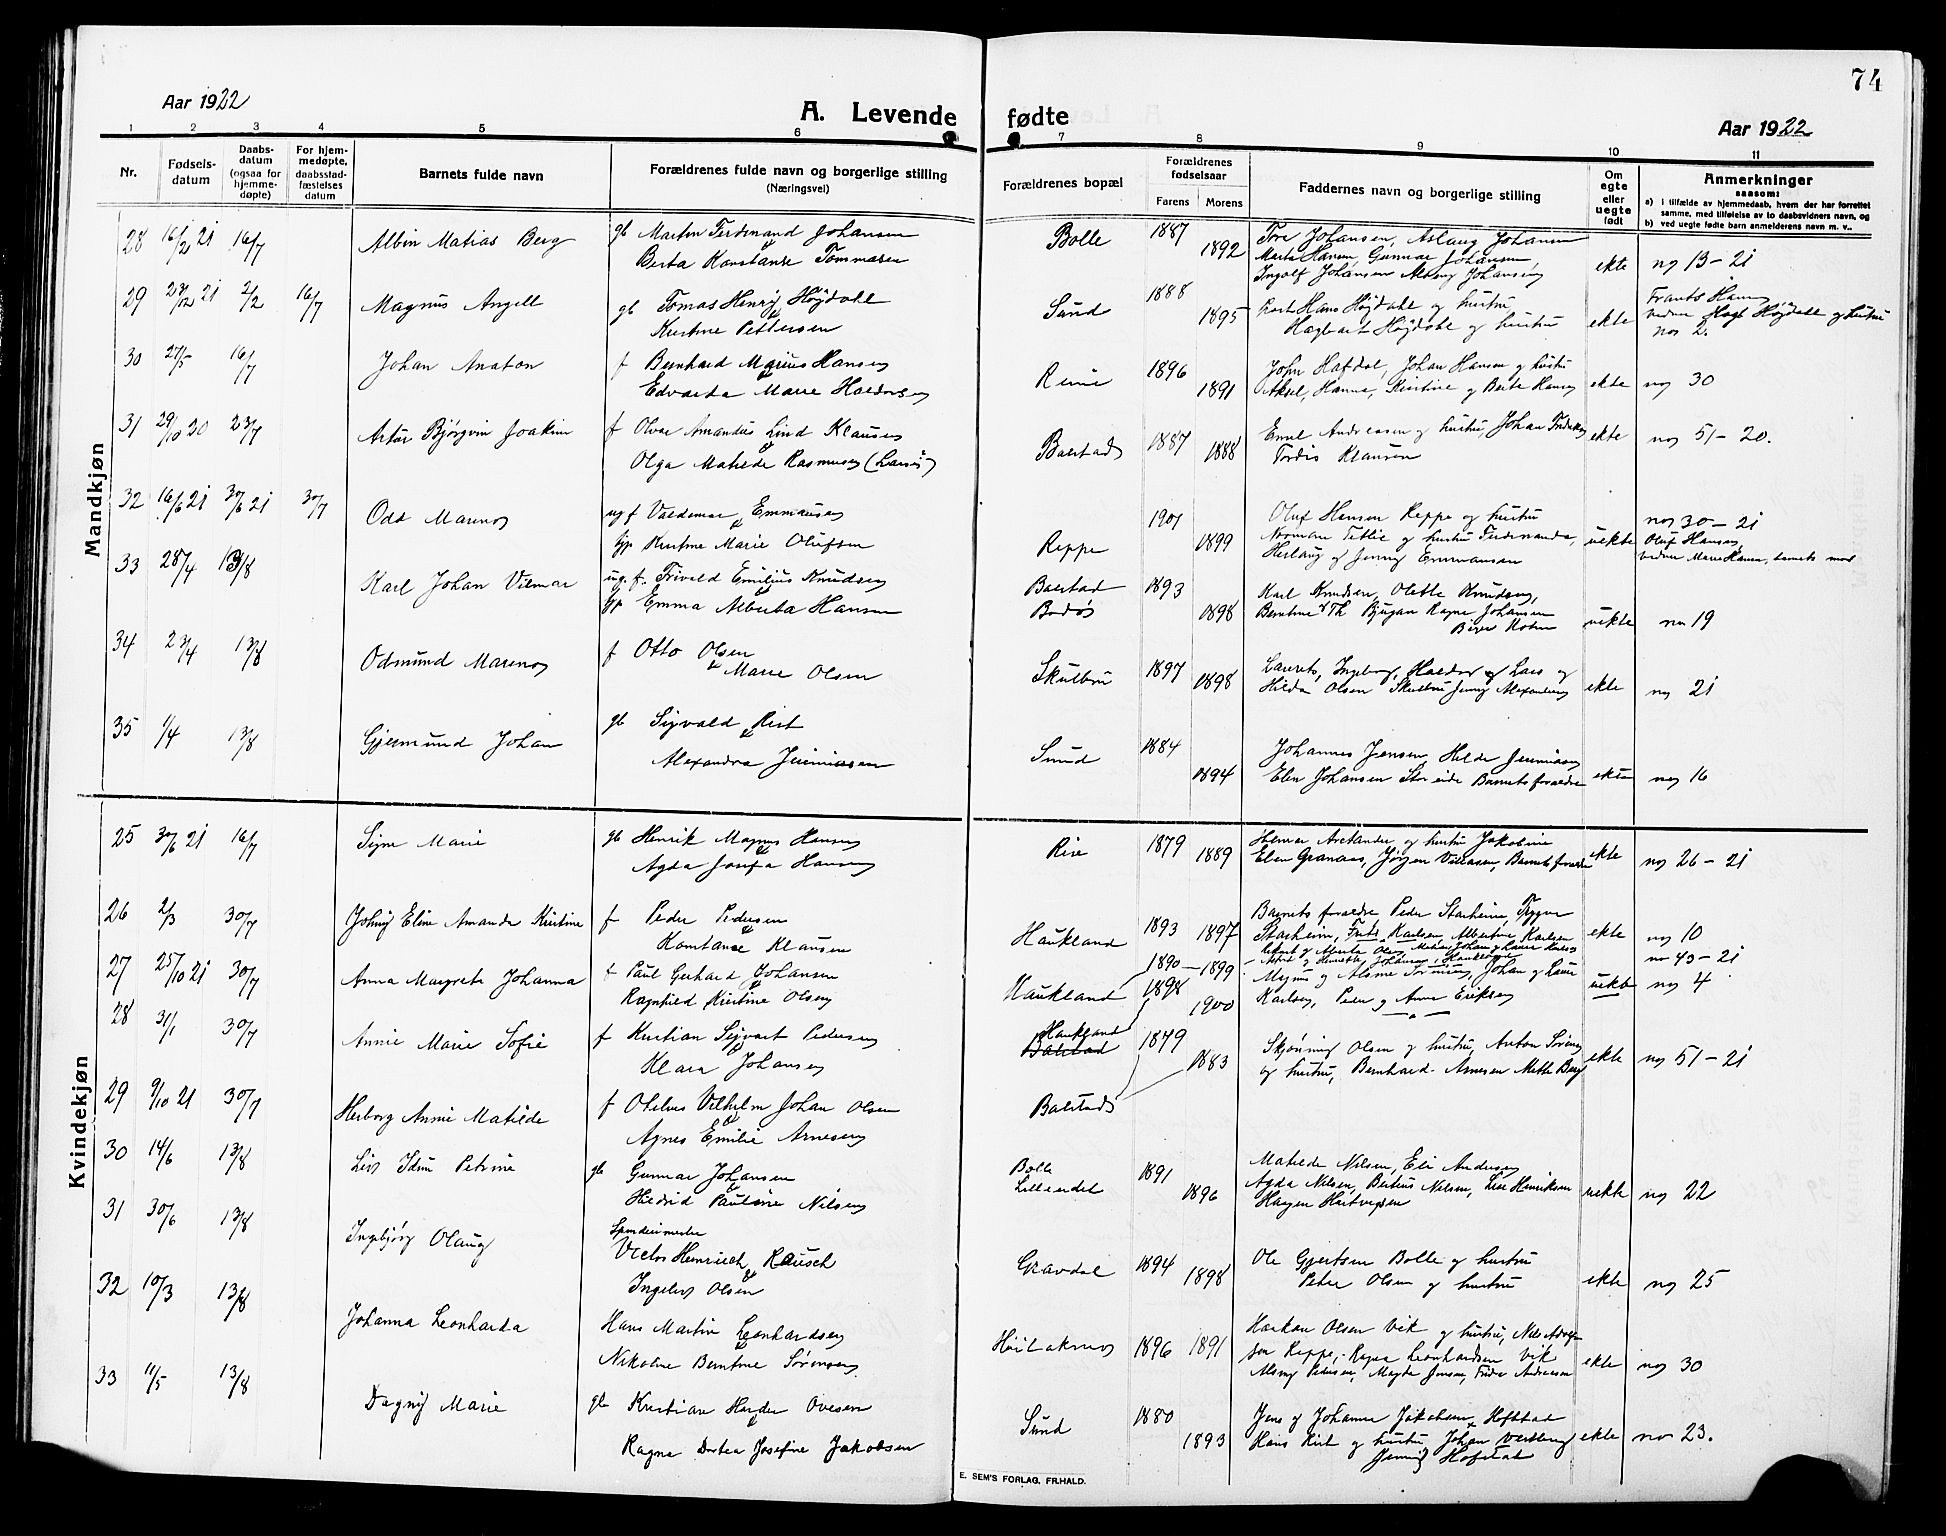 74
Aar 1922
A. Levende fødte
Aar 1922
1 2 3 4 5 6 7 8 9 10 11
Nr.
Fødselsdatum
Daabsdatum (ogsaa for hjemmedøpte)
For hjemmedøpte, daabsstadfæstelses datum
Barnets fulde navn
Forældrenes fulde navn og borgerlige stilling
(Næringsvei)
Forældrenes bopæl
Forældrenes fødselsaar
Farens Morens
Faddernes navn og borgerlige stilling
Om egte eller uegte født
Anmerkninger
saasom:
a) i tilfælde av hjemmedaab, hvem der har forrettet samme, med tilføielse av to daabsvidners navn, og
b) ved uegte fødte barn anmelderens navn m. v..
Mandkjøn
28 16/2 21 16/7 Albin Matias Berg gb Martin Ferdinand Johansen Bolle 1887 Tore Johansen, Aslaug Johansen
& Berta Konstanse Tommasen 1892 Marta Hansen, Gunnar Johansen, ekte no 13-21
Ingolf Johansen
29 23/12 21 2/2 16/7 Magnus Angell gb Tomas Henrij Høydahl Sund 1888 Hans Høydahl og hustru Frants Hans
& Kristine Pettersen 1895 Hagbart Høydahl og hustru ekte Høydahl og hustru
no 2.
30 27/5 16/7 Johan Anaton f Bernhard Marius Hansen Reine 1896 John Hafdal, Johan Hansen og hustru
& Edvarda Marie Haldorsen 1891 Aksel, Hanna, Kristine og Berte Hansen ekte no 30
31 29/10 20 23/7 Artur Bjørgvin Joakim f Olvar Amandus Lind Klausen Balstad 1887 Emil Andreasen og hustru, Johan Fredriksen ekte no 51-20.
& Olga Matilde Rasmussen 1888 Tordis Klausen
32 16/6 21 30/6 21 30/7 Odd Marinus ug f Valdemar Emmausen 1901 Oluf Hansen Reppe og hustru no 30-21
gp Kristine Marie Olufsen Reppe 1899 Norman og hustru Ferdinanda, uekte Oluf Hansen
Herlaug og Jenny Emmausen Marie Hansen, barnets mor
33 28/4 13/8 Karl Johan Vilmar ug. f. Trivald Emilius Knudsen Balstad 1893 Karl Knudsen, Olette Knudsen,
gp Emma Alberta Hansen Bodøs 1898 Berntine & Th Bjugan Ragna Johansen uekte no 19
34 23/4 13/8 Odmund Marinus f Otto Olsen Skulbru 1897 Laurits, Ingeborg, Haldor og Lars og
& Marie Olsen 1898 Hilda Olsen Skulbru Jenny Alexandersen ekte no 21
35 1/4 13/8 Gjermund Johan gb Sigvald Rist Sund 1884 Johannes Jensen, Hilda Jeremiasen
& Alexandra Jeremiasen 1894 Elen Johansen Storeide Barnets forældre ekte no 16
Kvindekjøn
25 30/6 21 16/7 Signe Marie gb Henrik Magnus Hansen Rise 1879 og hustru Jakobine
& Agda Josefa Hansen 1889 Elen Granaas, Jørgen Villasen, Barnets forældre ekte no 26-21
26 2/3 30/7 Johnij Eline Amanda Kristine f Peder Pedersen Haukland 1893 Barnets forældre Peder Starheim, Trygve
& Konstanse Klausen 1897 Starheim, Karlsen Albertine Karlsen ekte no 10
27 25/10 21 30/7 Anna Margrete Johanna f Paul Gerhard Johansen Haukland 1890-1899 no 43-21
& Ragnhild Kristine Olsen 1898 Magnus og Johan og Laura uekte no 4
1900 Karlsen, Peder og Anna Eriksen
28 31/1 30/7 Annie Marie Sofie f Kristian Sigvart Pedersen Haukland Balstad 1879 Skjønning Olsen og hustru, Anton
& Klara Johansen 1883 og hustru, Bernhard Arnesen Mette Berg ekte no 51-21
29 9/10 21 30/7 Herborg Annie Matilde f Otelius Vilhelm Johan Olsen Balstad
& Agnes Emilie Arnesen
30 14/6 13/8 Liv Idun Petrine gb Gunnar Johansen Bolle 1891 Matilde Nilsen, Eli Andersen
& Hildrid Pauline Nilsen Lilleeidet 1896 Agda Nilsen, Bertius Nilsen, Lise Henriksen uekte no 22
Hagen Hartvigsen
31 30/6 13/8 Ingebjørg Olaug
Victor Heinrich Rausch Gravdal 1894 Ole Gjertsen Bolle og hustru
& Ingeleiv Olsen 1898 Peter Olsen og hustru ekte no 25
32 10/3 13/8 Johanna Leonharda Hans Martin Leonhardsen 1896 1891 Haakon Olsen Vik og hustru,
Nikoline Berntine Sørensen Reppe, Ragna Leonhardsen Vik ekte no 30
Pedersen, Magda Jensen, Frida Andreassen
33 11/5 13/8 Dagny Marie gb Kristian Ovesen Sund 1880 Jens og Johanna Jakobsen Hofstad
& Ragna Dortea Josefine Jakobsen 1893 Hans Rist og hustru, Johan ekte no 23.
Hofstad
E. SEM'S FORLAG, FR.HALD.